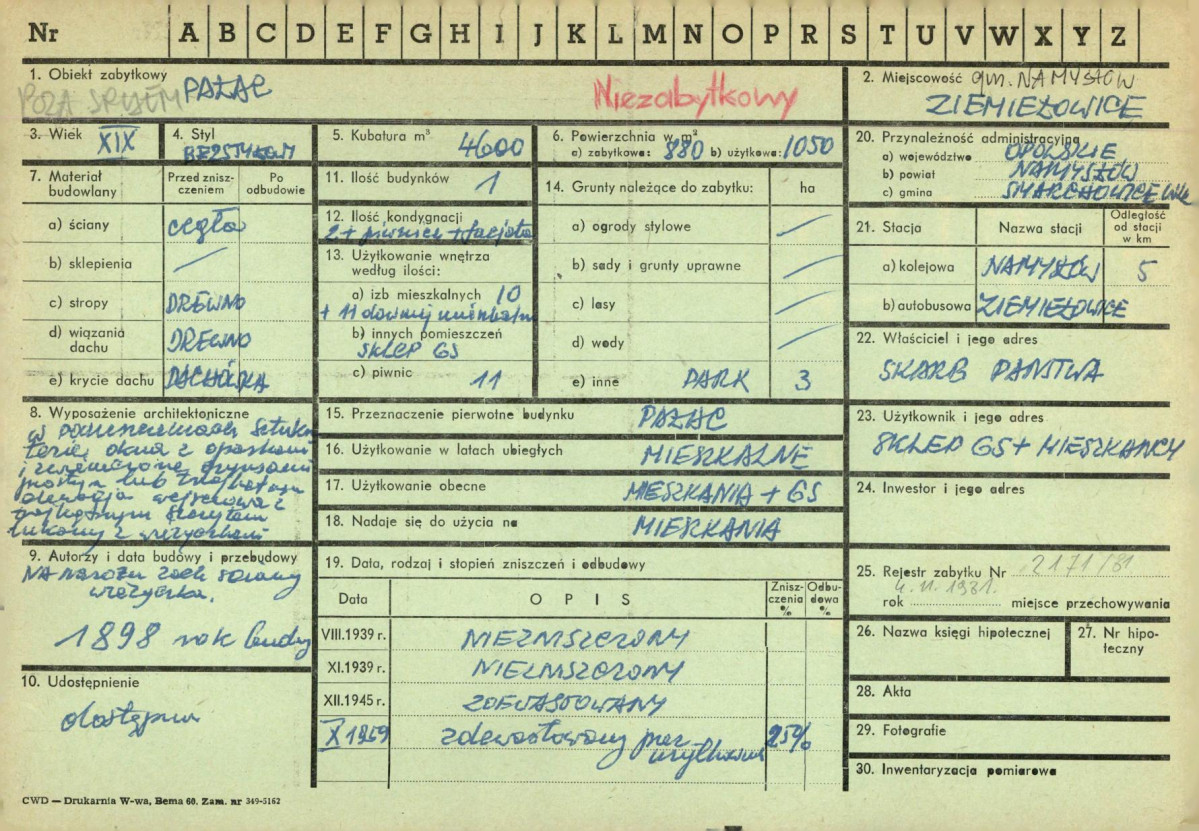 Nr A B C D E F G H I J K L M N O P R S T U V W X Y Z
1. Obiekt zabytkowy
PAŁAC
Niezabytkowy
2. Miejscowość gm. NAMYSŁÓW
ZIEMIEŁOWICE
3. Wiek
XIX
4. Styl
BEZSTYLOWY
5. Kubatura m³
4600
6. Powierzchnia w m²
a) zabytkowa: 880 b) użytkowa: 1050
20. Przynależność administracyjna
a) województwo OPOLSKIE
b) powiat NAMYSŁÓW
c) gmina SMARCHOWICE
7. Materiał budowlany
Przed znisz-
czeniem
Po
odbudowie
a) ściany cegła
b) sklepienia —
c) stropy DREWNO
d) wiązania
dachu DREWNO
e) krycie dachu DACHÓWKA
11. Ilość budynków 1
12. Ilość kondygnacji
2 + piwnice + facjata
13. Użytkowanie wnętrza
według ilości:
a) izb mieszkalnych 10
+ 11
b) innych pomieszczeń
SKLEP GS
c) piwnic 11
14. Grunty należące do zabytku: ha
a) ogrody stylowe —
b) sady i grunty uprawne —
c) lasy —
d) wody —
e) inne PARK 3
21. Stacja
Nazwa stacji
Odległość
od stacji
w km
a) kolejowa NAMYSŁÓW 5
b) autobusowa ZIEMIEŁOWICE
22. Właściciel i jego adres
SKARB PAŃSTWA
8. Wyposażenie architektoniczne
w pomieszczeniach sztuka-
terie, okna z opaskami
i gzymsami
prostym lub
wejściowa z
łukowy z wieżyczkami
15. Przeznaczenie pierwotne budynku PAŁAC
16. Użytkowanie w latach ubiegłych MIESZKALNE
17. Użytkowanie obecne MIESZKANIA + GS
18. Nadaje się do użycia na MIESZKANIA
23. Użytkownik i jego adres
SKLEP GS + MIESZKAŃCY
24. Inwestor i jego adres
9. Autorzy i data budowy i przebudowy
NA narożu zach ściany
wieżyczka.
1898 rok budowy
10. Udostępnienie
dostępny
19. Data, rodzaj i stopień zniszczeń i odbudowy
Data
O P I S
Znisz-
czenia
%
Odbu-
dowa
%
VIII.1939 r. NIEZNISZCZONY
XI.1939 r. NIEZNISZCZONY
XII.1945 r. ZDEWASTOWANY
X 1959 zdewastowany przez 25%
25. Rejestr zabytku Nr 2171/81
4. 11. 1981.
rok miejsce przechowywania
26. Nazwa księgi hipotecznej
27. Nr hipo-
teczny
28. Akta
29. Fotografie
30. Inwentaryzacja pomiarowa
CWD — Drukarnia W-wa, Bema 60. Zam. nr 349-5162